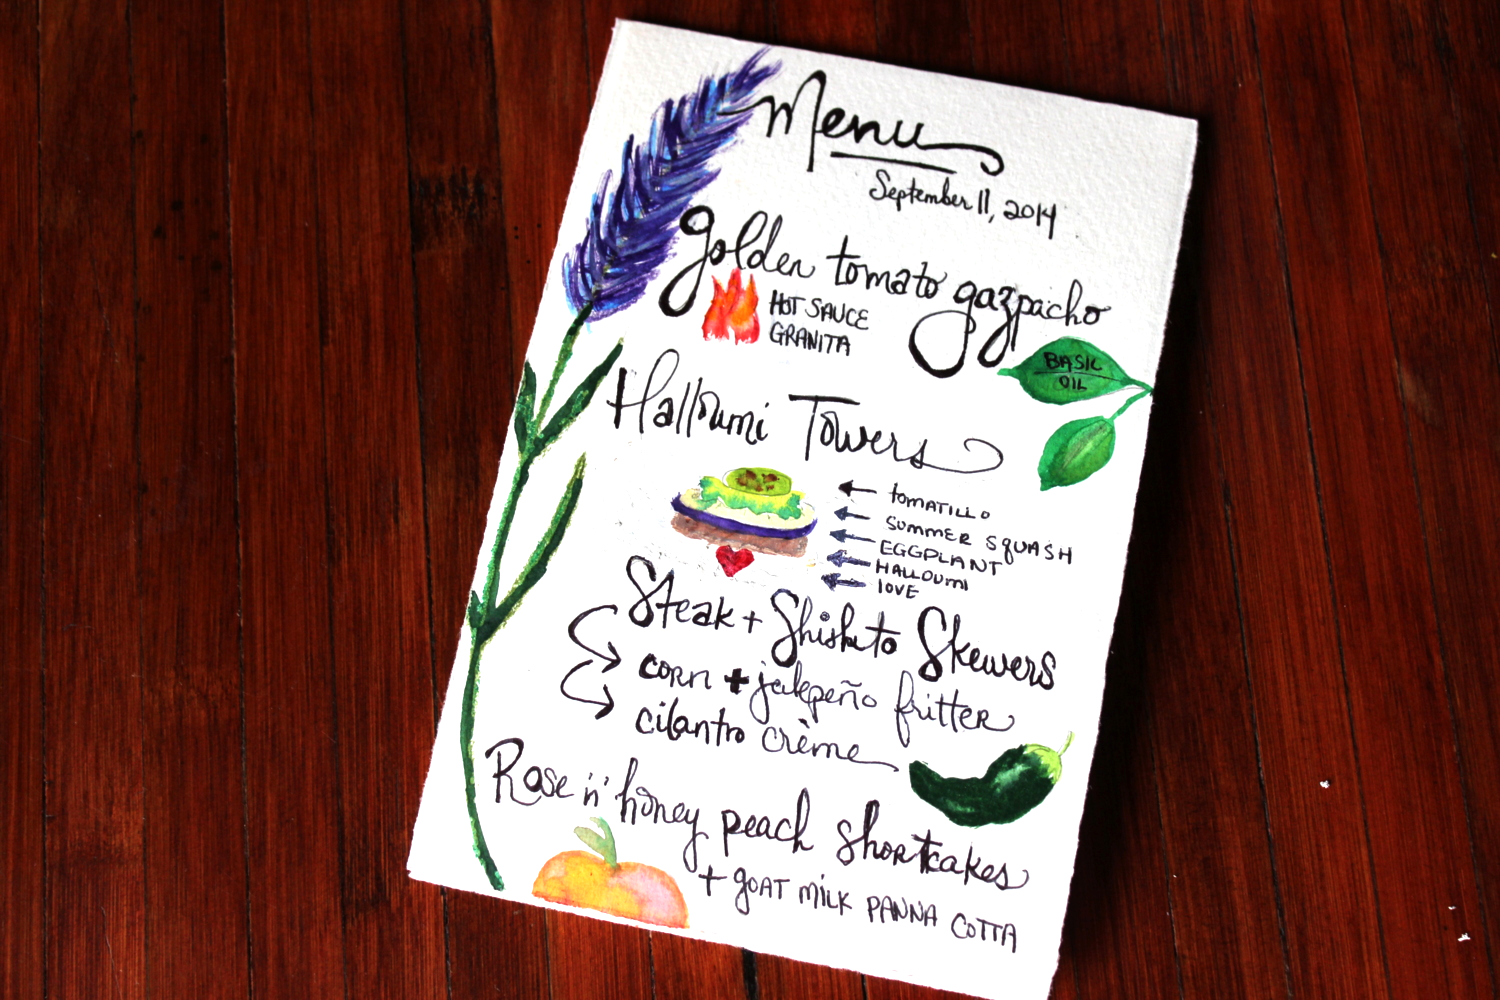 Menu
September 11, 2014
golden tomato gazpacho
HOT SAUCE
GRANITA
BASIL
OIL
Halloumi Towers
tomatillo
SUMMER SQUASH
EGGPLANT
HALLOUMI
LOVE
Steak + Shishito Skewers
corn + jalepeño fritter
cilantro crème
Rose 'n' honey peach shortcakes
+ goat milk panna cotta